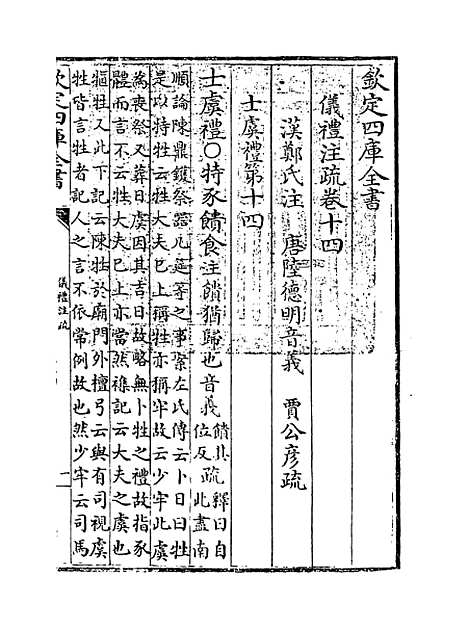 欽定四庫全書
儀禮注疏卷十四
漢鄭氏注 唐陸德明音義 賈公彥疏
士虞禮第十四
士虞禮○特豕饋食注饋猶歸也音義饋其位反疏釋曰自此盡南
順論陳鼎鑊祭器几筵等之事案左氏傳云卜日曰牲
是以特牲云牲大夫巳上稱牲亦稱牢故云少牢此虞
為喪祭又葬日虞因其吉日故略無卜牲之禮故指豕
體而言不云牲大夫巳上亦當然雜記云大夫之虞也
犆牲又此下記云陳牲於廟門外檀弓云與有司視虞
牲皆言牲者記人之言不依常例故也然少牢云司馬
欽定四庫全書
儀禮注疏
一